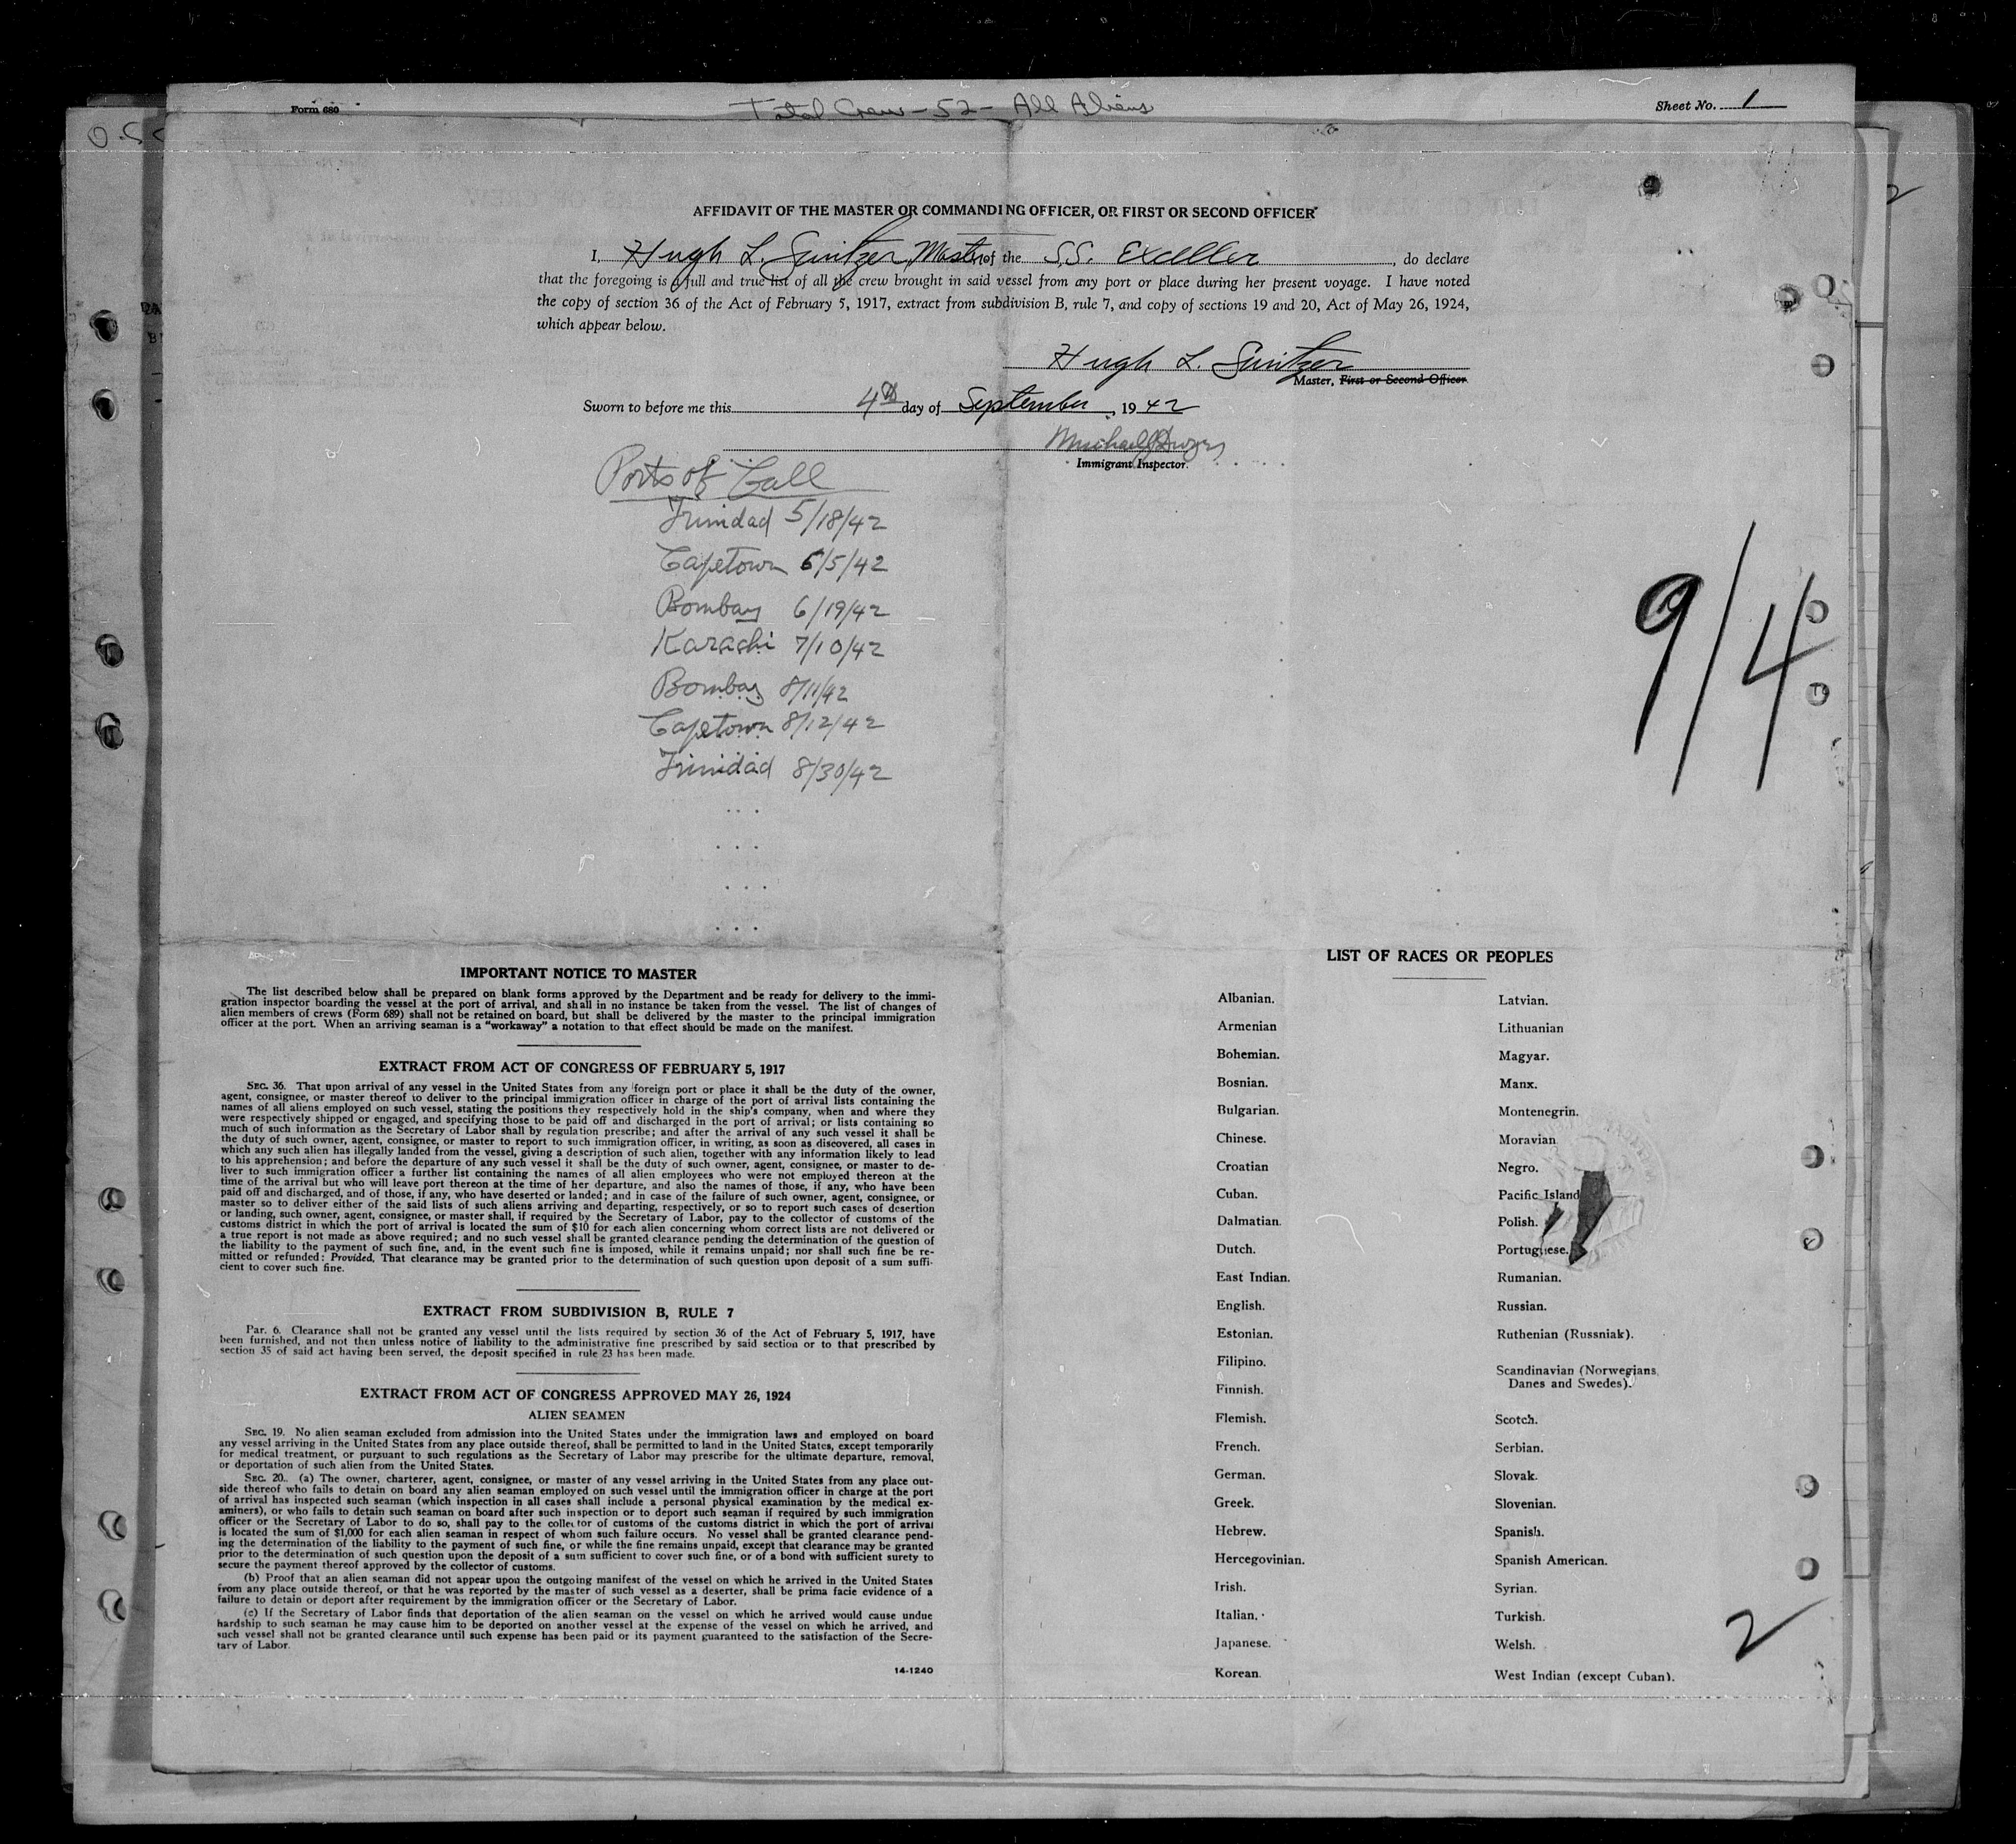 Form 680
Total Crew - 52 - All Aliens
Sheet No. 1
AFFIDAVIT OF THE MASTER OR COMMANDING OFFICER, OR FIRST OR SECOND OFFICER
I, Hugh L. Switzer, Master of the S.S. Exceller, do declare
that the foregoing is a full and true list of all the crew brought in said vessel from any port or place during her present voyage. I have noted
the copy of section 36 of the Act of February 5, 1917, extract from subdivision B, rule 7, and copy of sections 19 and 20, Act of May 26, 1924,
which appear below.
Hugh L. Switzer
Master, First or Second Officer.
Sworn to before me this 4th day of September, 1942
Immigrant Inspector.
Ports of Call
Trinidad 5/18/42
Capetown 6/5/42
Bombay 6/19/42
Karachi 7/10/42
Bombay 8/11/42
Capetown 8/12/42
Trinidad 8/30/42
9/4
IMPORTANT NOTICE TO MASTER
The list described below shall be prepared on blank forms approved by the Department and be ready for delivery to the immi-
gration inspector boarding the vessel at the port of arrival, and shall in no instance be taken from the vessel. The list of changes of
alien members of crews (Form 689) shall not be retained on board, but shall be delivered by the master to the principal immigration
officer at the port. When an arriving seaman is a "workaway" a notation to that effect should be made on the manifest.
EXTRACT FROM ACT OF CONGRESS OF FEBRUARY 5, 1917
SEC. 36. That upon arrival of any vessel in the United States from any foreign port or place it shall be the duty of the owner,
agent, consignee, or master thereof to deliver to the principal immigration officer in charge of the port of arrival lists containing the
names of all aliens employed on such vessel, stating the positions they respectively hold in the ship's company, when and where they
were respectively shipped or engaged, and specifying those to be paid off and discharged in the port of arrival; or lists containing so
much of such information as the Secretary of Labor shall by regulation prescribe; and after the arrival of any such vessel it shall be
the duty of such owner, agent, consignee, or master to report to such immigration officer, in writing, as soon as discovered, all cases in
which any such alien has illegally landed from the vessel, giving a description of such alien, together with any information likely to lead
to his apprehension; and before the departure of any such vessel it shall be the duty of such owner, agent, consignee, or master to de-
liver to such immigration officer a further list containing the names of all alien employees who were not employed thereon at the
time of the arrival but who will leave port thereon at the time of her departure, and also the names of those, if any, who have been
paid off and discharged, and of those, if any, who have deserted or landed; and in case of the failure of such owner, agent, consignee, or
master so to deliver either of the said lists of such aliens arriving and departing, respectively, or so to report such cases of desertion
or landing, such owner, agent, consignee, or master shall, if required by the Secretary of Labor, pay to the collector of customs of the
customs district in which the port of arrival is located the sum of $10 for each alien concerning whom correct lists are not delivered or
a true report is not made as above required; and no such vessel shall be granted clearance pending the determination of the question of
the liability to the payment of such fine, and, in the event such fine is imposed, while it remains unpaid; nor shall such fine be re-
mitted or refunded: Provided, That clearance may be granted prior to the determination of such question upon deposit of a sum suffi-
cient to cover such fine.
EXTRACT FROM SUBDIVISION B, RULE 7
Par. 6. Clearance shall not be granted any vessel until the lists required by section 36 of the Act of February 5, 1917, have
been furnished, and not then unless notice of liability to the administrative fine prescribed by said section or to that prescribed by
section 35 of said act having been served, the deposit specified in rule 23 has been made.
EXTRACT FROM ACT OF CONGRESS APPROVED MAY 26, 1924
ALIEN SEAMEN
SEC. 19. No alien seaman excluded from admission into the United States under the immigration laws and employed on board
any vessel arriving in the United States from any place outside thereof, shall be permitted to land in the United States, except temporarily
for medical treatment, or pursuant to such regulations as the Secretary of Labor may prescribe for the ultimate departure, removal,
or deportation of such alien from the United States.
SEC. 20. (a) The owner, charterer, agent, consignee, or master of any vessel arriving in the United States from any place out-
side thereof who fails to detain on board any alien seaman employed on such vessel until the immigration officer in charge at the port
of arrival has inspected such seaman (which inspection in all cases shall include a personal physical examination by the medical ex-
aminers), or who fails to detain such seaman on board after such inspection or to deport such seaman if required by such immigration
officer or the Secretary of Labor to do so, shall pay to the collector of customs of the customs district in which the port of arrival
is located the sum of $1,000 for each alien seaman in respect of whom such failure occurs. No vessel shall be granted clearance pend-
ing the determination of the liability to the payment of such fine, or while the fine remains unpaid, except that clearance may be granted
prior to the determination of such question upon the deposit of a sum sufficient to cover such fine, or of a bond with sufficient surety to
secure the payment thereof approved by the collector of customs.
(b) Proof that an alien seaman did not appear upon the outgoing manifest of the vessel on which he arrived in the United States
from any place outside thereof, or that he was reported by the master of such vessel as a deserter, shall be prima facie evidence of a
failure to detain or deport after requirement by the immigration officer or the Secretary of Labor.
(c) If the Secretary of Labor finds that deportation of the alien seaman on the vessel on which he arrived would cause undue
hardship to such seaman he may cause him to be deported on another vessel at the expense of the vessel on which he arrived, and
such vessel shall not be granted clearance until such expense has been paid or its payment guaranteed to the satisfaction of the Secre-
tary of Labor.
14-1240
LIST OF RACES OR PEOPLES
Albanian.
Armenian
Bohemian.
Bosnian.
Bulgarian.
Chinese.
Croatian
Cuban.
Dalmatian.
Dutch.
East Indian.
English.
Estonian.
Filipino.
Finnish.
Flemish.
French.
German.
Greek.
Hebrew.
Hercegovinian.
Irish.
Italian.
Japanese.
Korean.
Latvian.
Lithuanian
Magyar.
Manx.
Montenegrin.
Moravian
Negro.
Pacific Island
Polish.
Portuguese.
Rumanian.
Russian.
Ruthenian (Russniak).
Scandinavian (Norwegians,
Danes and Swedes).
Scotch.
Serbian.
Slovak.
Slovenian.
Spanish.
Spanish American.
Syrian.
Turkish.
Welsh.
West Indian (except Cuban).
2